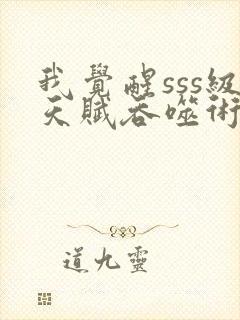 我覺醒sss級
天賦吞噬術
道九靈